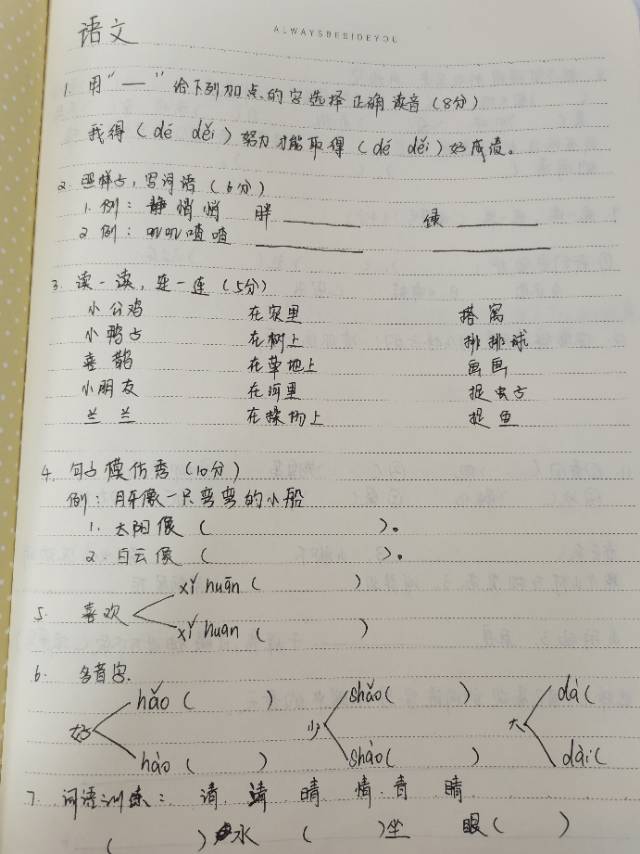 ALWAYSBESIDEYOU
语文
1. 用“—”给下列加点的字选择正确读音(8分)
我得(dé děi)努力才能取得(dé děi)好成绩。
2. 照样子,写词语(6分)
1. 例:静悄悄 胖______ 绿______
2 例:叽叽喳喳 ______ ______
3. 读一读,连一连(5分)
小公鸡 在家里 搭窝
小鸭子 在树上 排排球
喜鹊 在草地上 画画
小朋友 在河里 捉虫子
兰兰 在操场上 捉鱼
4. 句子模仿秀(10分)
例:月牙像一只弯弯的小船
1. 太阳像( )。
2. 白云像( )。
xǐ huān( )
5. 喜欢
xǐ huan( )
6. 多音字.
hǎo( ) shǎo( ) dà(
好 少 大
hào( ) shào( ) dài(
7. 词语训练: 清. 请 晴 情. 青 睛
( )水 ( )坐 眼( )